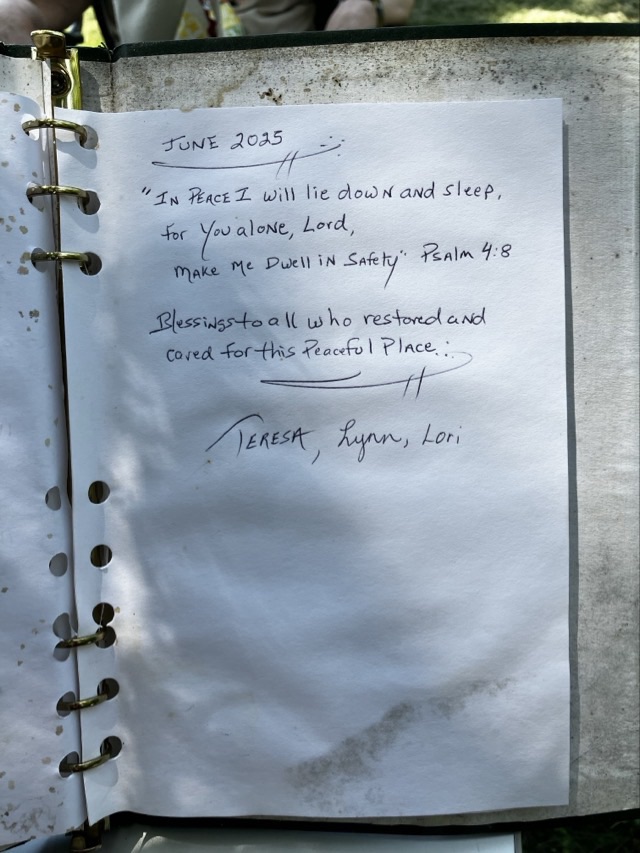 JUNE 2025
"IN PEACE I will lie down and sleep,
for You alone, Lord,
make me Dwell in Safety" Psalm 4:8
Blessings to all who restored and
cared for this Peaceful Place.
TERESA, Lynn, Lori